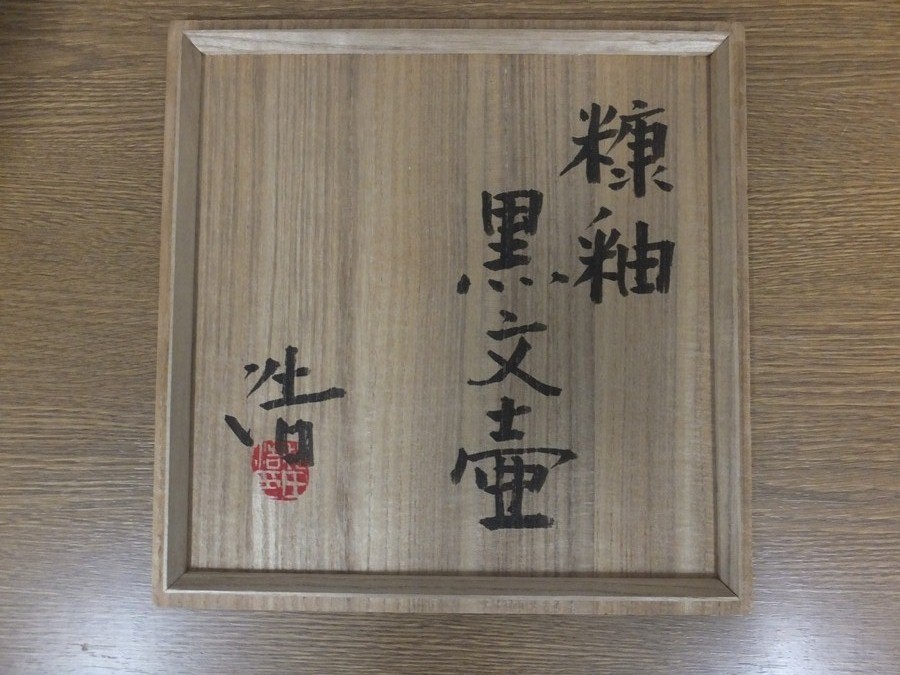 糠釉
黒文壷
浩